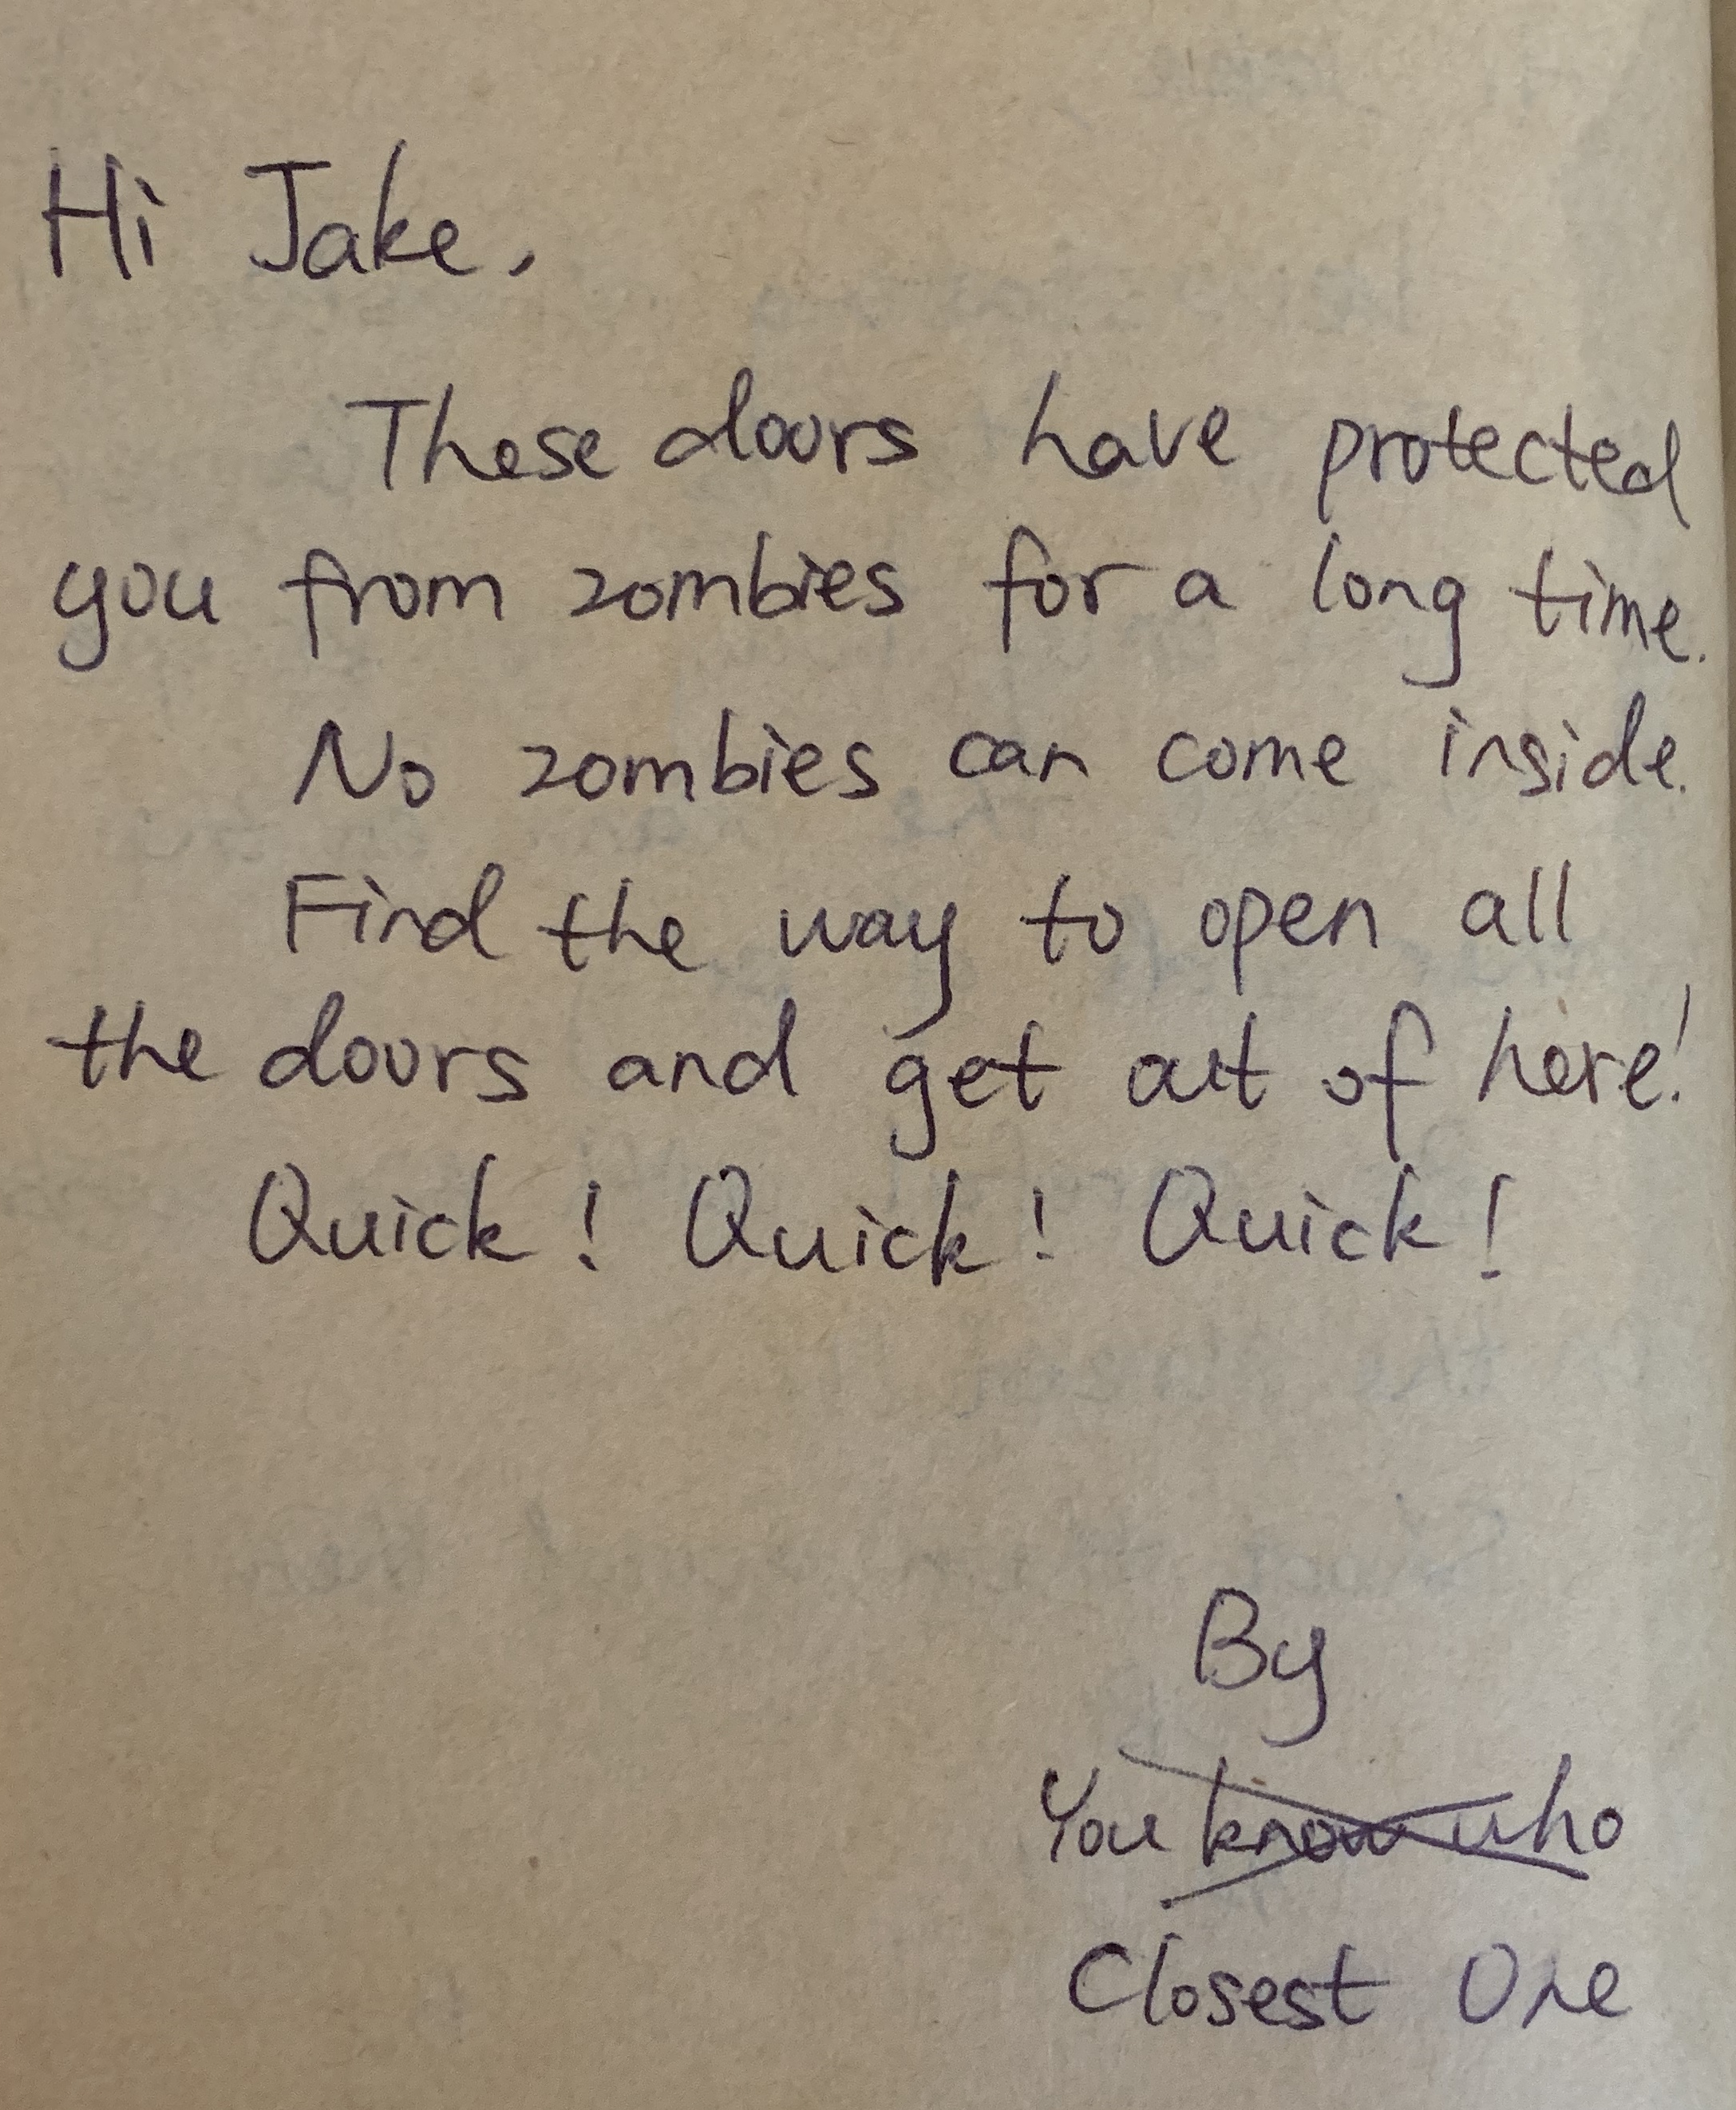 Hi Jake,
These doors have protected
you from zombies for a long time.
No zombies can come inside.
Find the way to open all
the doors and get out of here!
Quick! Quick! Quick!
By
You know who
Closest One